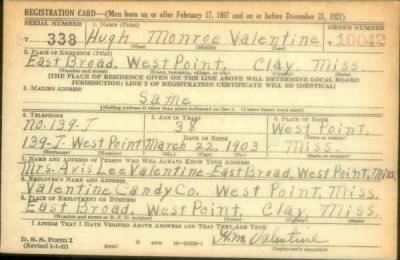 REGISTRATION CARD—(Men born on or after February 17, 1897 and on or before December 31, 1921)
SERIAL NUMBER 1. NAME (Print) ORDER NUMBER
T 338 Hugh Monroe Valentine 10042
(First) (Middle) (Last)
2. PLACE OF RESIDENCE (Print)
East Broad, West Point, Clay Miss.
(Number and street) (Town, township, village, or city) (County) (State)
[THE PLACE OF RESIDENCE GIVEN ON THE LINE ABOVE WILL DETERMINE LOCAL BOARD
JURISDICTION; LINE 2 OF REGISTRATION CERTIFICATE WILL BE IDENTICAL]
3. MAILING ADDRESS
Same
[Mailing address if other than place indicated on line 2. If same insert word same]
4. TELEPHONE 5. AGE IN YEARS 6. PLACE OF BIRTH
No. 139-J 38 West Point,
DATE OF BIRTH
139-J West Point March 22, 1903 Miss.
7. NAME AND ADDRESS OF PERSON WHO WILL ALWAYS KNOW YOUR ADDRESS
Mrs. Avis Lee Valentine-East Broad, West Point, Miss.
8. EMPLOYER'S NAME AND ADDRESS
Valentine Candy Co. West Point, Miss.
9. PLACE OF EMPLOYMENT OR BUSINESS
East Broad, West Point Clay Miss.
(Number and street or R. F. D. number) (Town) (County) (State)
I AFFIRM THAT I HAVE VERIFIED ABOVE ANSWERS AND THAT THEY ARE TRUE.
D. S. S. Form 1
(Revised 1-1-42) H.M. Valentine
(Registrant's signature)